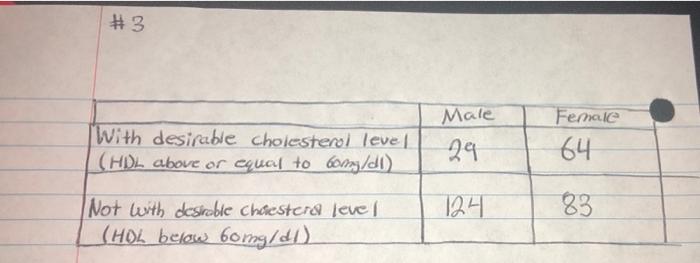 #3
Male Female
With desirable cholesterol level 29 64
(HDL above or equal to 60mg/dl)
Not with desirable cholesterol level 124 83
(HDL below 60mg/dl)